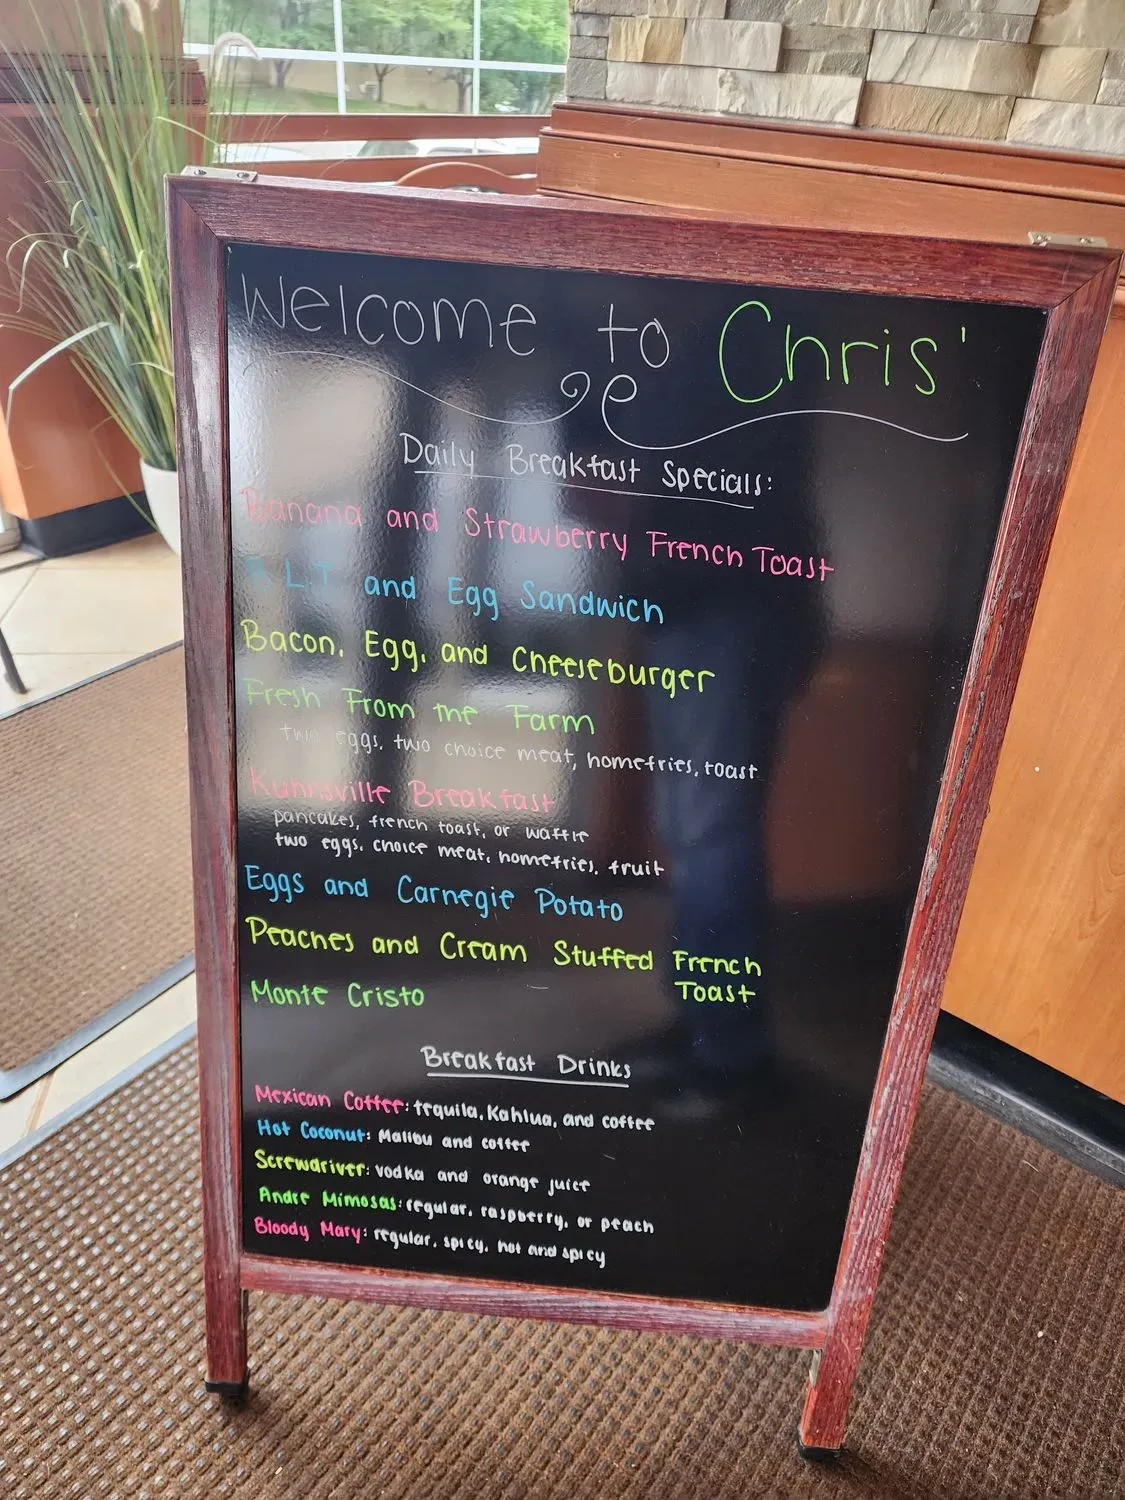 Welcome to Chris'
Daily Breakfast Specials:
Banana and Strawberry French Toast
B.L.T. and Egg Sandwich
Bacon, Egg, and Cheeseburger
Fresh From the Farm
two eggs, two choice meat, homefries, toast
Kunnsville Breakfast
pancakes, french toast, or waffle
two eggs, choice meat, homefries, fruit
Eggs and Carnegie Potato
Peaches and Cream Stuffed French
Toast
Monte Cristo
Breakfast Drinks
Mexican Coffee: tequila, Kahlua, and coffee
Hot Coconut: Malibu and coffee
Screwdriver: vodka and orange juice
Andre Mimosas: regular, raspberry, or peach
Bloody Mary: regular, spicy, hot and spicy